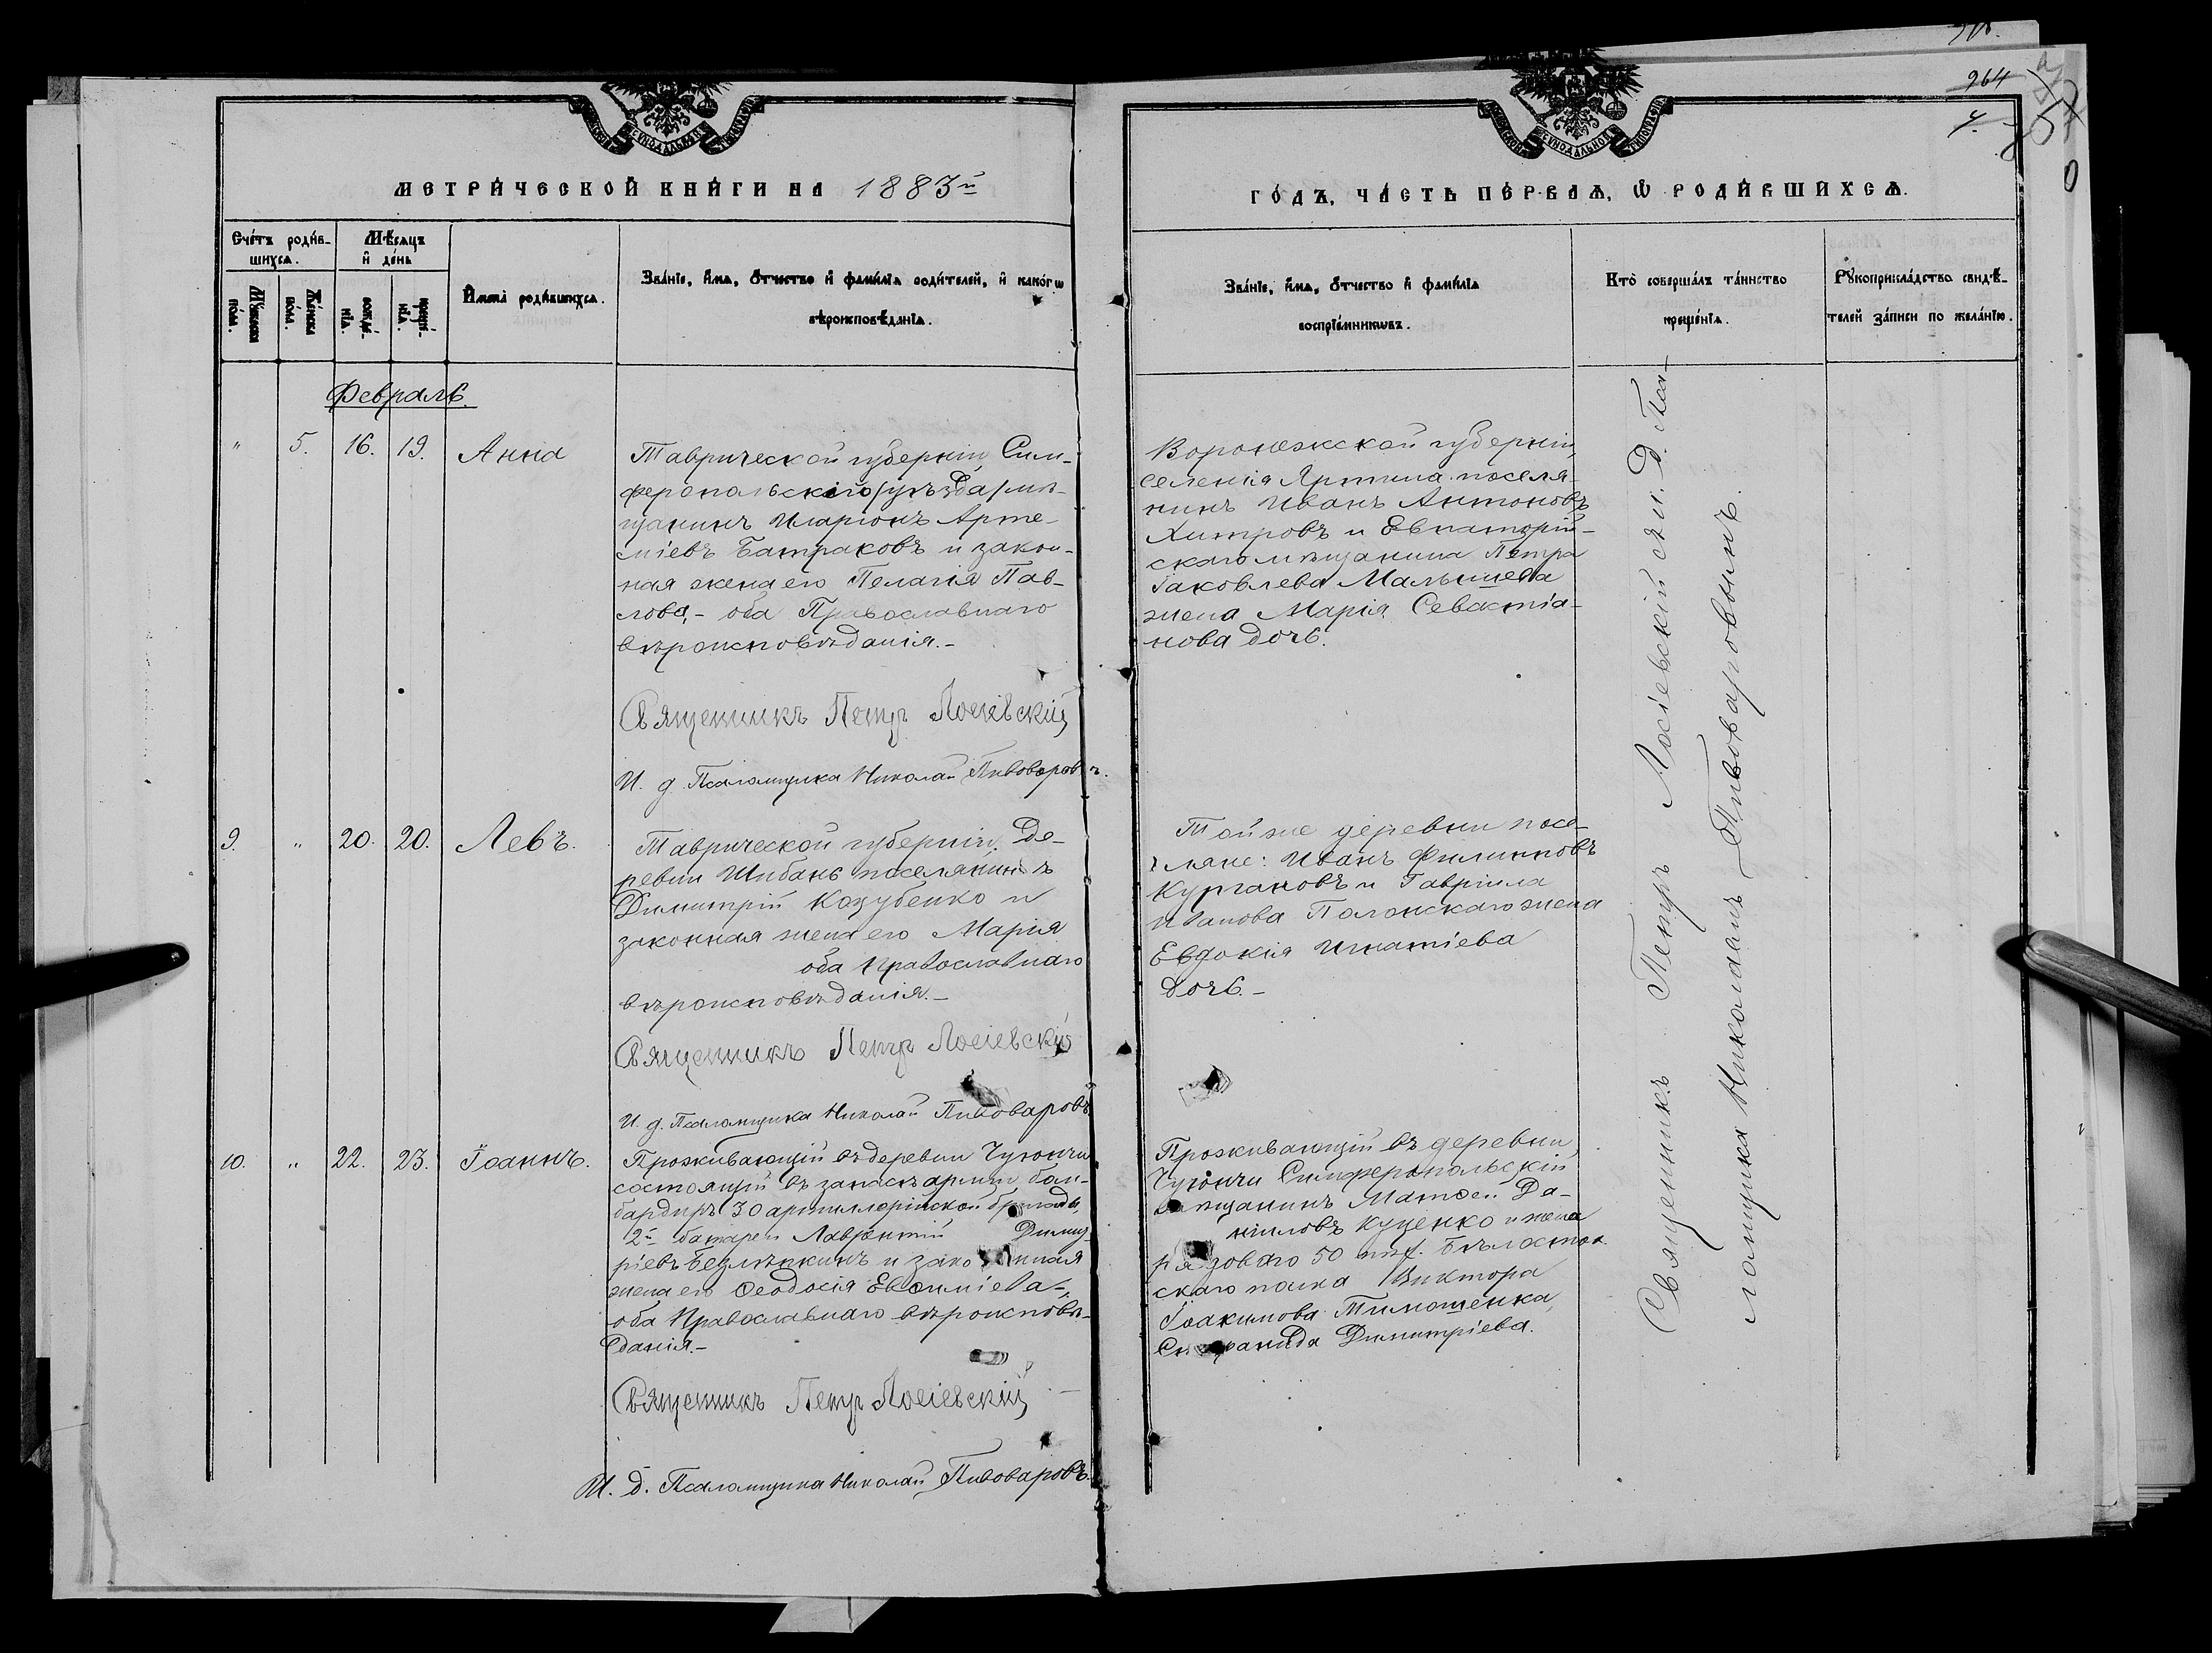 264
МЕТРИЧЕСКОЙ КНИГИ НА 1883й
ГОДЪ, ЧАСТЬ ПЕРВАЯ, Ѿ РОДИВШИХСЯ.
Счетъ родив-
шихся.
Мѣсяцъ
и день
Имена родившихся.
Званіе, имя, ѻтчество и фамилія родителей, и какогѡ
вѣроисповѣданія.
Мужеска
пола.
Женска
пола.
рожде-
нія.
креще-
нія.
Званіе, имя, ѻтчество и фамилія
воспріемникѡвъ.
Кто совершалъ таинство
крещенія.
Рукоприкладство свидѣ-
телей записи по желанію.
Февраль.
" 5. 16. 19. Анна
Таврической губерніи, Сим-
феропольскаго /уѣзда/ мѣ-
щанинъ Иларіонъ Арте-
міевъ Батраковъ и закон-
ная жена его Пелагія Пав-
лова,- оба Православнаго
вѣроисповѣданія.-
Священникъ Петръ Лосіевскій
И. д. Псаломщика Николай Пивоваровъ.
Воронежской губерніи,
селенія Яртина поселя-
нинъ Иванъ Антоновъ
Хитровъ и Евпаторій-
скаго мѣщанина Петра
Іаковлева Малышева
жена Марія Севастіа-
нова дочь.
9. " 20. 20. Левъ.
Таврической губерніи, де-
ревни Шибань поселянинъ
Димитрій Козубенко и
законная жена его Марія
оба Православнаго
вѣроисповѣданія.-
Священникъ Петръ Лосіевскій
И. д. Псаломщика Николай Пивоваровъ
Той же деревни посе-
ляне: Иванъ Филипповъ
Кургановъ и Гавріила
Иванова Полонскаго жена
Евдокія Игнатіева
дочь.-
10. " 22. 23. Іоаннъ.
Проживающій въ деревни Чуюнчи
состоящій въ запасѣ арміи, бом-
бардиръ 30 артиллерійской бригады,
2й батареи Лаврентій Димит-
ріевъ Безлѣпкинъ и законная
жена его Ѳеодосія Евѳиміева-,
оба Православнаго вѣроисповѣ-
данія.-
Священникъ Петръ Лосіевскій
И. д. Псаломщика Николай Пивоваровъ.
Проживающій въ деревни
Чуюнчи Симферопольскій
мѣщанинъ Матѳей Да-
ніиловъ Куценко и жена
рядоваго 50 пѣх. Бѣлосток-
скаго полка Виктора
Іоакимова Тимошенка,
Димитріева.
Священникъ Петръ Лосіевскій съ и. д. Пса-
ломщика Николаемъ Пивоваровымъ.